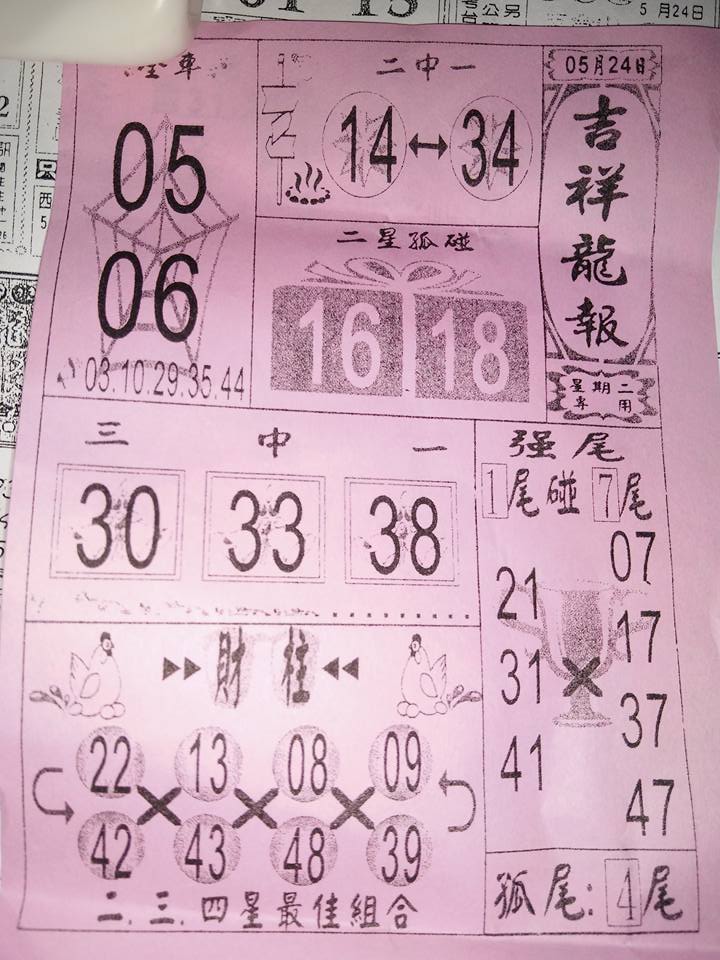 5月24日
05月24日
吉祥龍報
星期二
專用
全車
05
06
03.10.29.35.44
二中一
14↔34
二星孤碰
16 18
三中一
30 33 38
强尾
1尾碰7尾
21 07
31 × 17
41 37
47
孤尾:4尾
▶▶財柱◀◀
22 13 08 09
× × ×
42 43 48 39
二.三.四星最佳組合